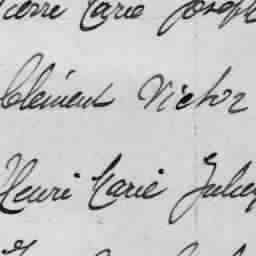 Pierre Marie Joseph
Clément Victor
Henri Marie Julien